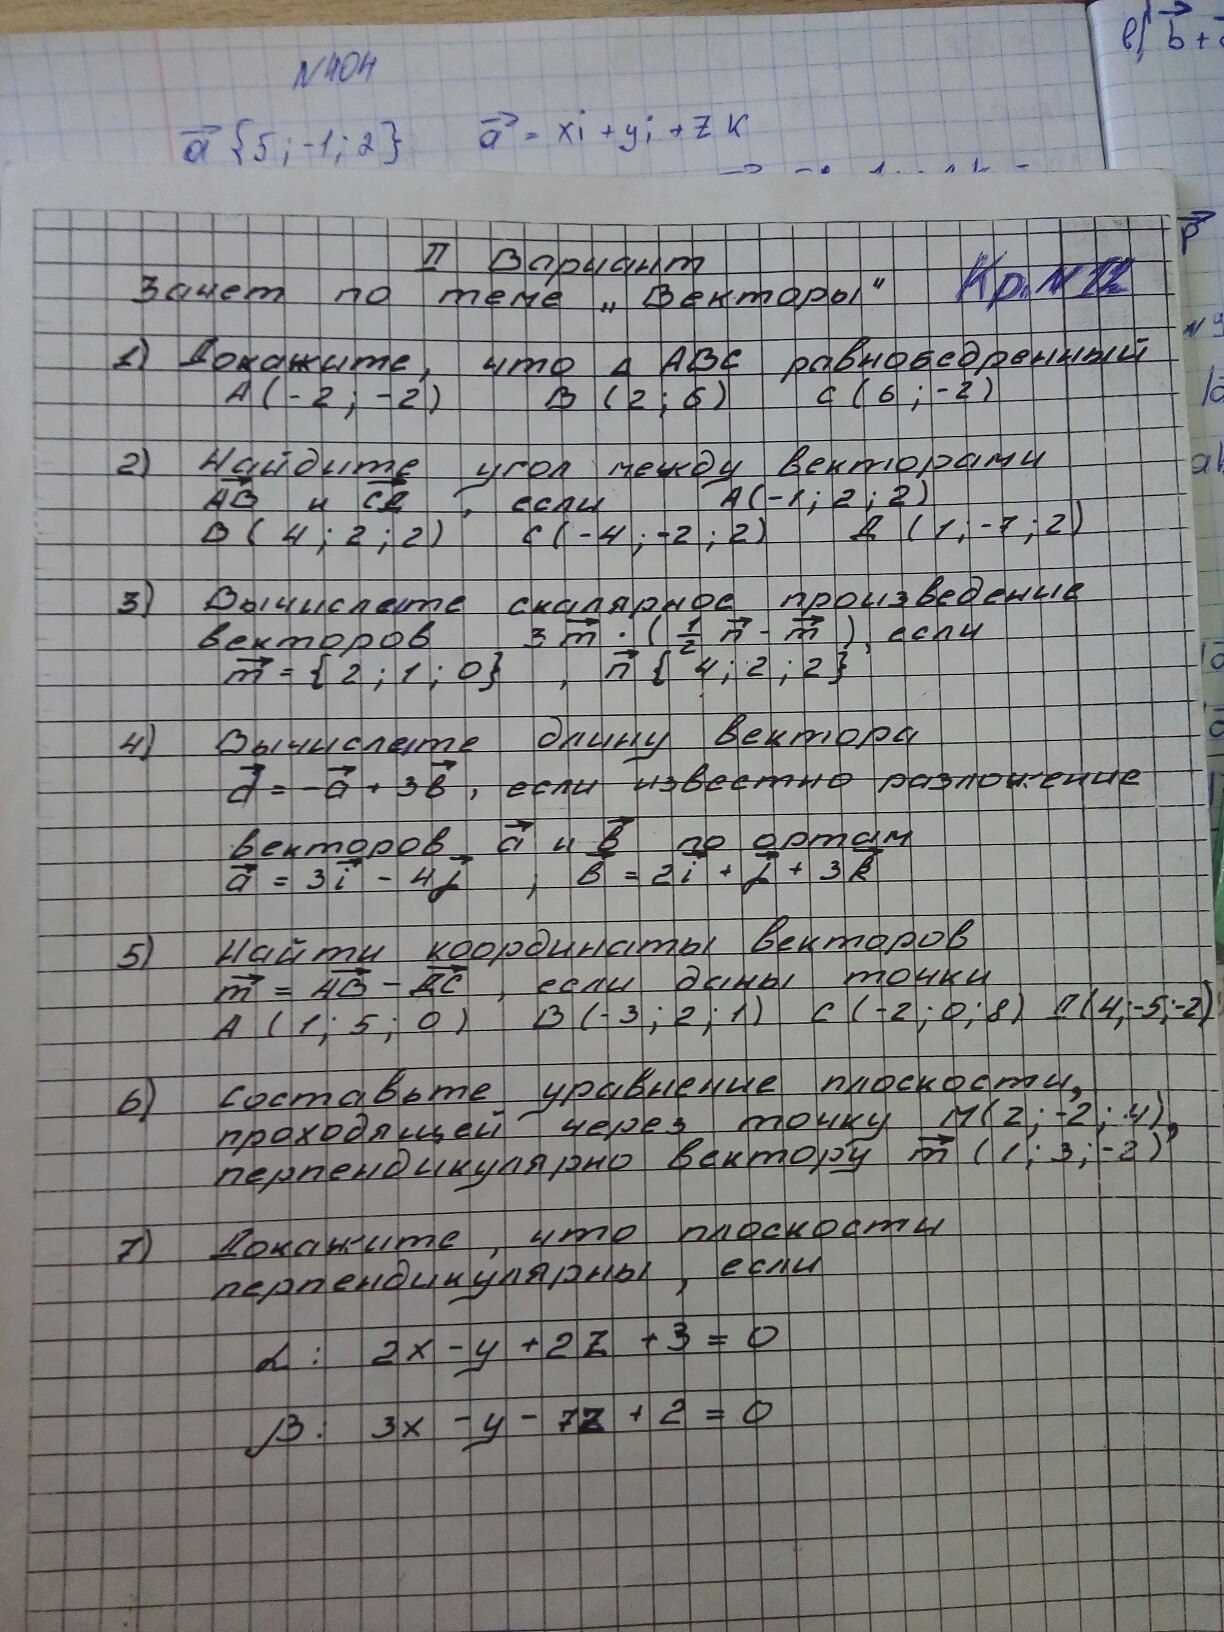 N404
a⃗ {5;-1;2} a⃗ = xi + yj + zк
в) b⃗ +
II Вариант
Зачет по теме „Векторы" Кр.N 12
1) Докажите, что Δ ABC равнобедренный
A(-2;-2) B(2;6) C(6;-2)
2) Найдите угол между векторами
AB⃗ и СД⃗, если A(-1;2;2)
B(4;2;2) C(-4;-2;2) Д(1;-7;2)
3) Вычислете скалярное произведение
векторов 3m⃗ · (1/2 n⃗ - m⃗), если
m⃗ = {2;1;0}, n⃗ {4;2;2}
4) Вычислете длину вектора
d⃗ = -a⃗ + 3в⃗, если известно разложение
векторов a⃗ и в⃗ по ортам
a⃗ = 3i⃗ - 4j⃗ ; в⃗ = 2i⃗ + j⃗ + 3k⃗
5) Найти координаты векторов
m⃗ = AB⃗ - ДС⃗, если даны точки
A(1;5;0) B(-3;2;1) C(-2;0;8) Д(4;-5;-2)
6) Составьте уравнение плоскости,
проходящей через точку M(2;-2;4),
перпендикулярно вектору m⃗ (1;3;-2)
7) Докажите, что плоскости
перпендикулярны, если
α: 2x - y + 2z + 3 = 0
β: 3x - y - 7z + 2 = 0